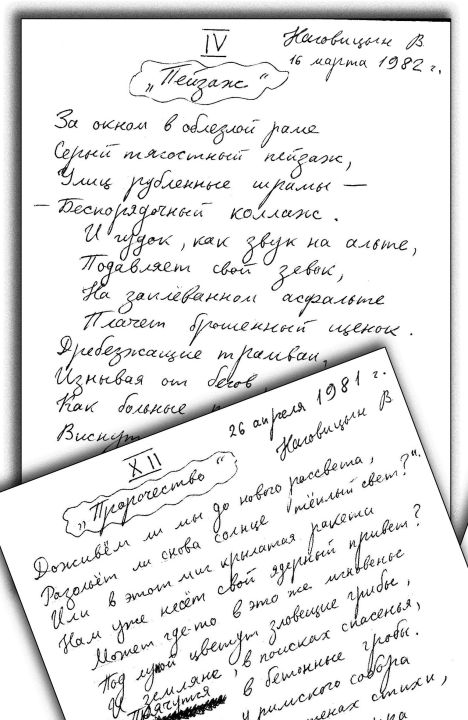 IV
Наговицын В
16 марта 1982 г.
„Пейзаж“
За окном в облезлой раме
Серый тягостный пейзаж,
Улиц рубленные шрамы —
— Беспорядочный коллаж.
И гудок, как звук на альте,
Подавляет свой зевок,
На заплёванном асфальте
Плачет брошенный щенок.
Дребезжащие трамваи,
Изнывая от бегов,
Как больные
Виснут
26 апреля 1981 г.
Наговицын В
XII
„Пророчество“
Доживём ли мы до нового рассвета,
Разольёт ли снова солнце тёплый свет?".
Или в этот миг крылатая ракета
Нам уже несёт свой ядерный привет?
Может где-то в это же мгновенье
Под луной цветут зловещие грибы,
И земляне, в поисках спасенья,
Прячутся в бетонные гробы.
у римского собора
стенах стихи,